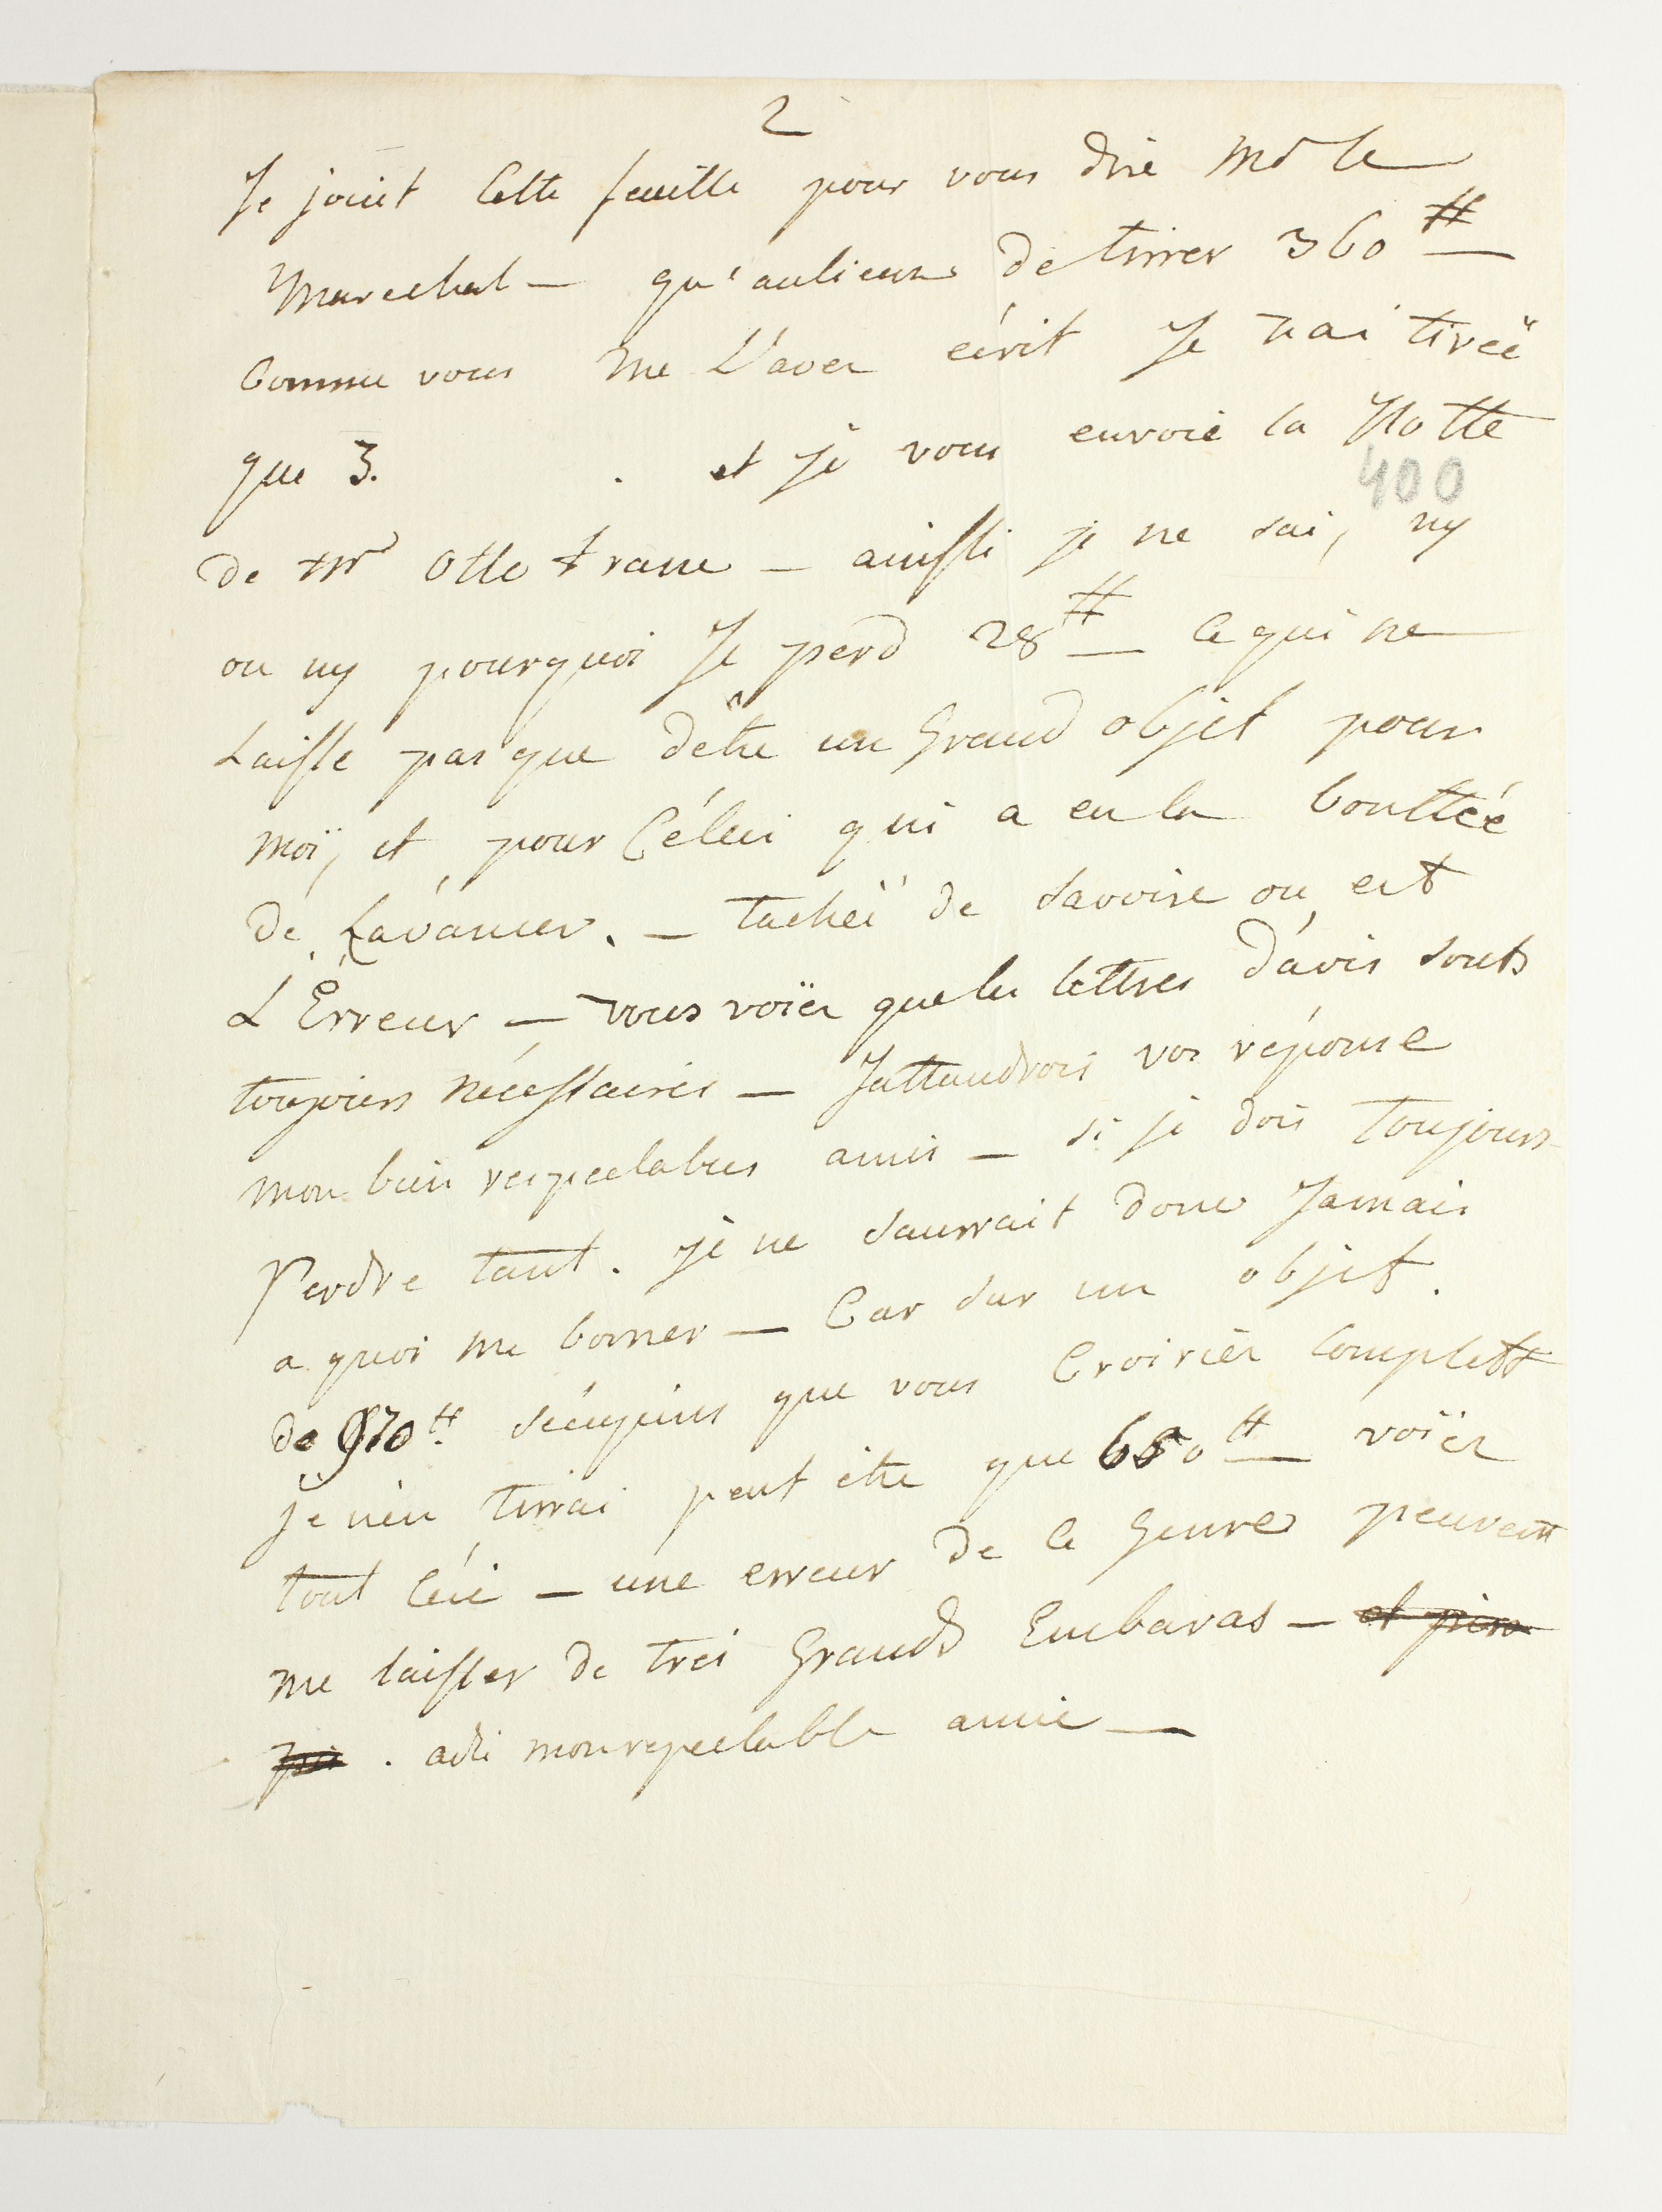 2
Je joint Cette feuille pour vous dire Mr le
Marechal — qu'aulieur de tirrer 360 #
Comme vous me L'avez écrit Je n'ai tireé
que 3. . et je vous envoie la Notte
400
de Mr Otto Frane — ainssi je ne sai, ny
ou ny pourquoi Je perd 28 # Ce qui ne
Laisse pas que d'ètre un Grand objet pour
moï, et pour Célui qui a eu la bonttéé
de Lavancer. — tacheï de savoire ou est
L'Erreur — vous voïez que les lettres d'avis sonts
toujours nécessaires — Jattandrois vos réponse
mon bien respectables amis — si je dois Toujours
Perdre tant. je ne saurrait donc Jamais
a quoi me borner — Car sur un objet.
de 970 # séequins que vous Croiriez Complett
je n'en tirrai peut être que 660 # voïez
tout Céci — une erreur de Ce Genre peuvent
me laisser de trés Grands Embaras — et
. adi mon respectable amie —